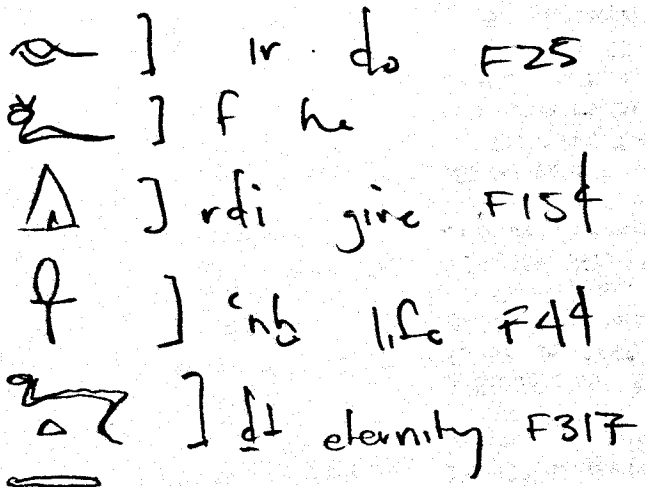 𓁹 ] ir. do F25
𓆑 ] f he
𓏙 ] rdi give F154
𓋹 ] ꜥnḫ life F44
𓆓𓏏𓇾 ] ḏt eternity F317